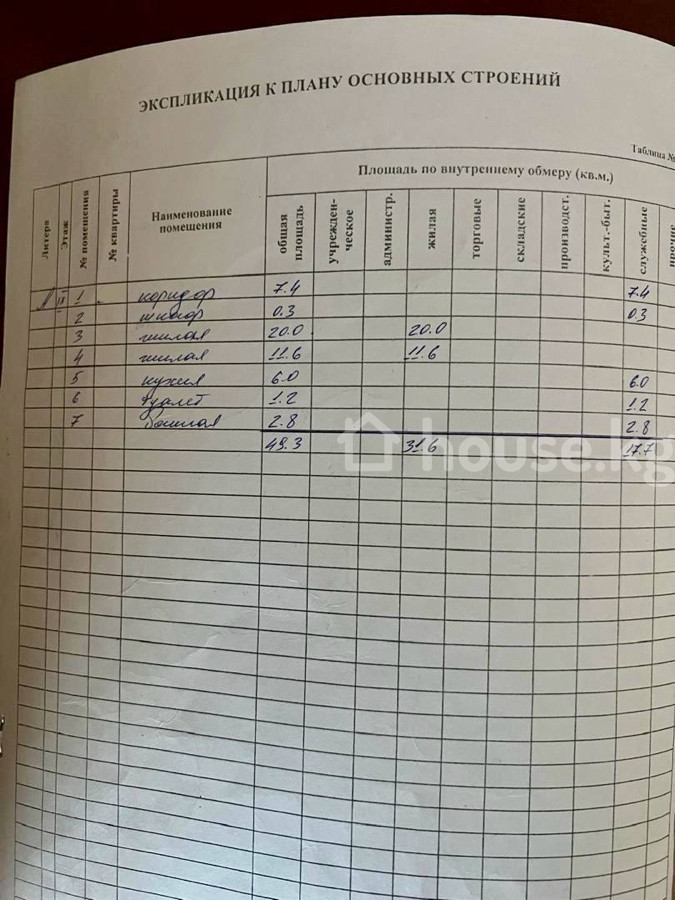 ЭКСПЛИКАЦИЯ К ПЛАНУ ОСНОВНЫХ СТРОЕНИЙ
Таблица №
Литера Этаж № помещения № квартиры Наименование помещения Площадь по внутреннему обмеру (кв.м.)
общая площадь учрежден-ческое администр. жилая торговые складские производст. культ.-быт. служебные прочие
1 коридор 7.4 7.4
2 шкаф 0.3 0.3
3 жилая 20.0 20.0
4 жилая 11.6 11.6
5 кухня 6.0 6.0
6 туалет 1.2 1.2
7 ванная 2.8 2.8
49.3 31.6 17.7
house.kg